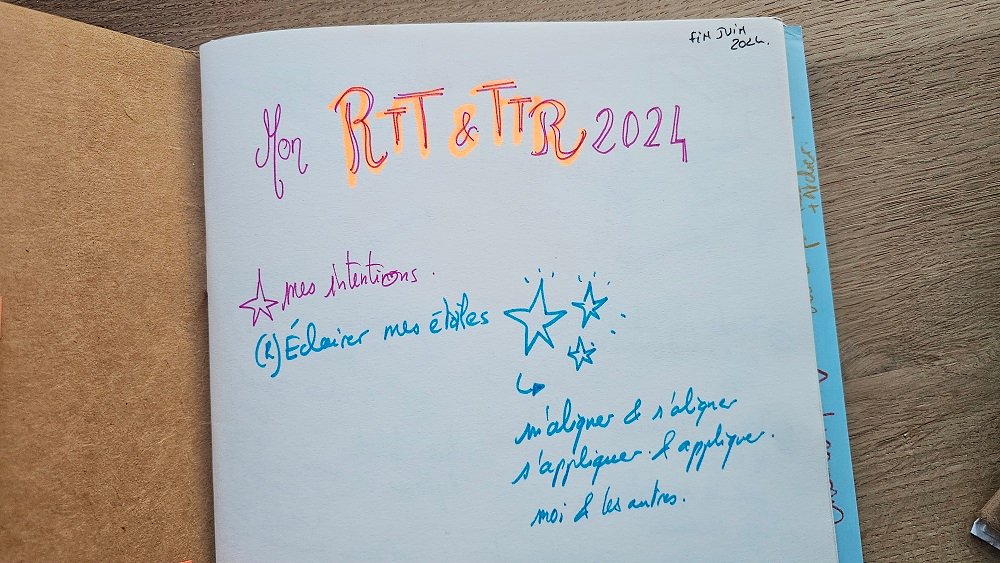 fin JUIN
2024.
Mon RTT & TTR 2024
mes intentions.
(R) Éclairer mes étoiles
m'aligner & s'aligner
s'appliquer. & appliquer.
moi & les autres.